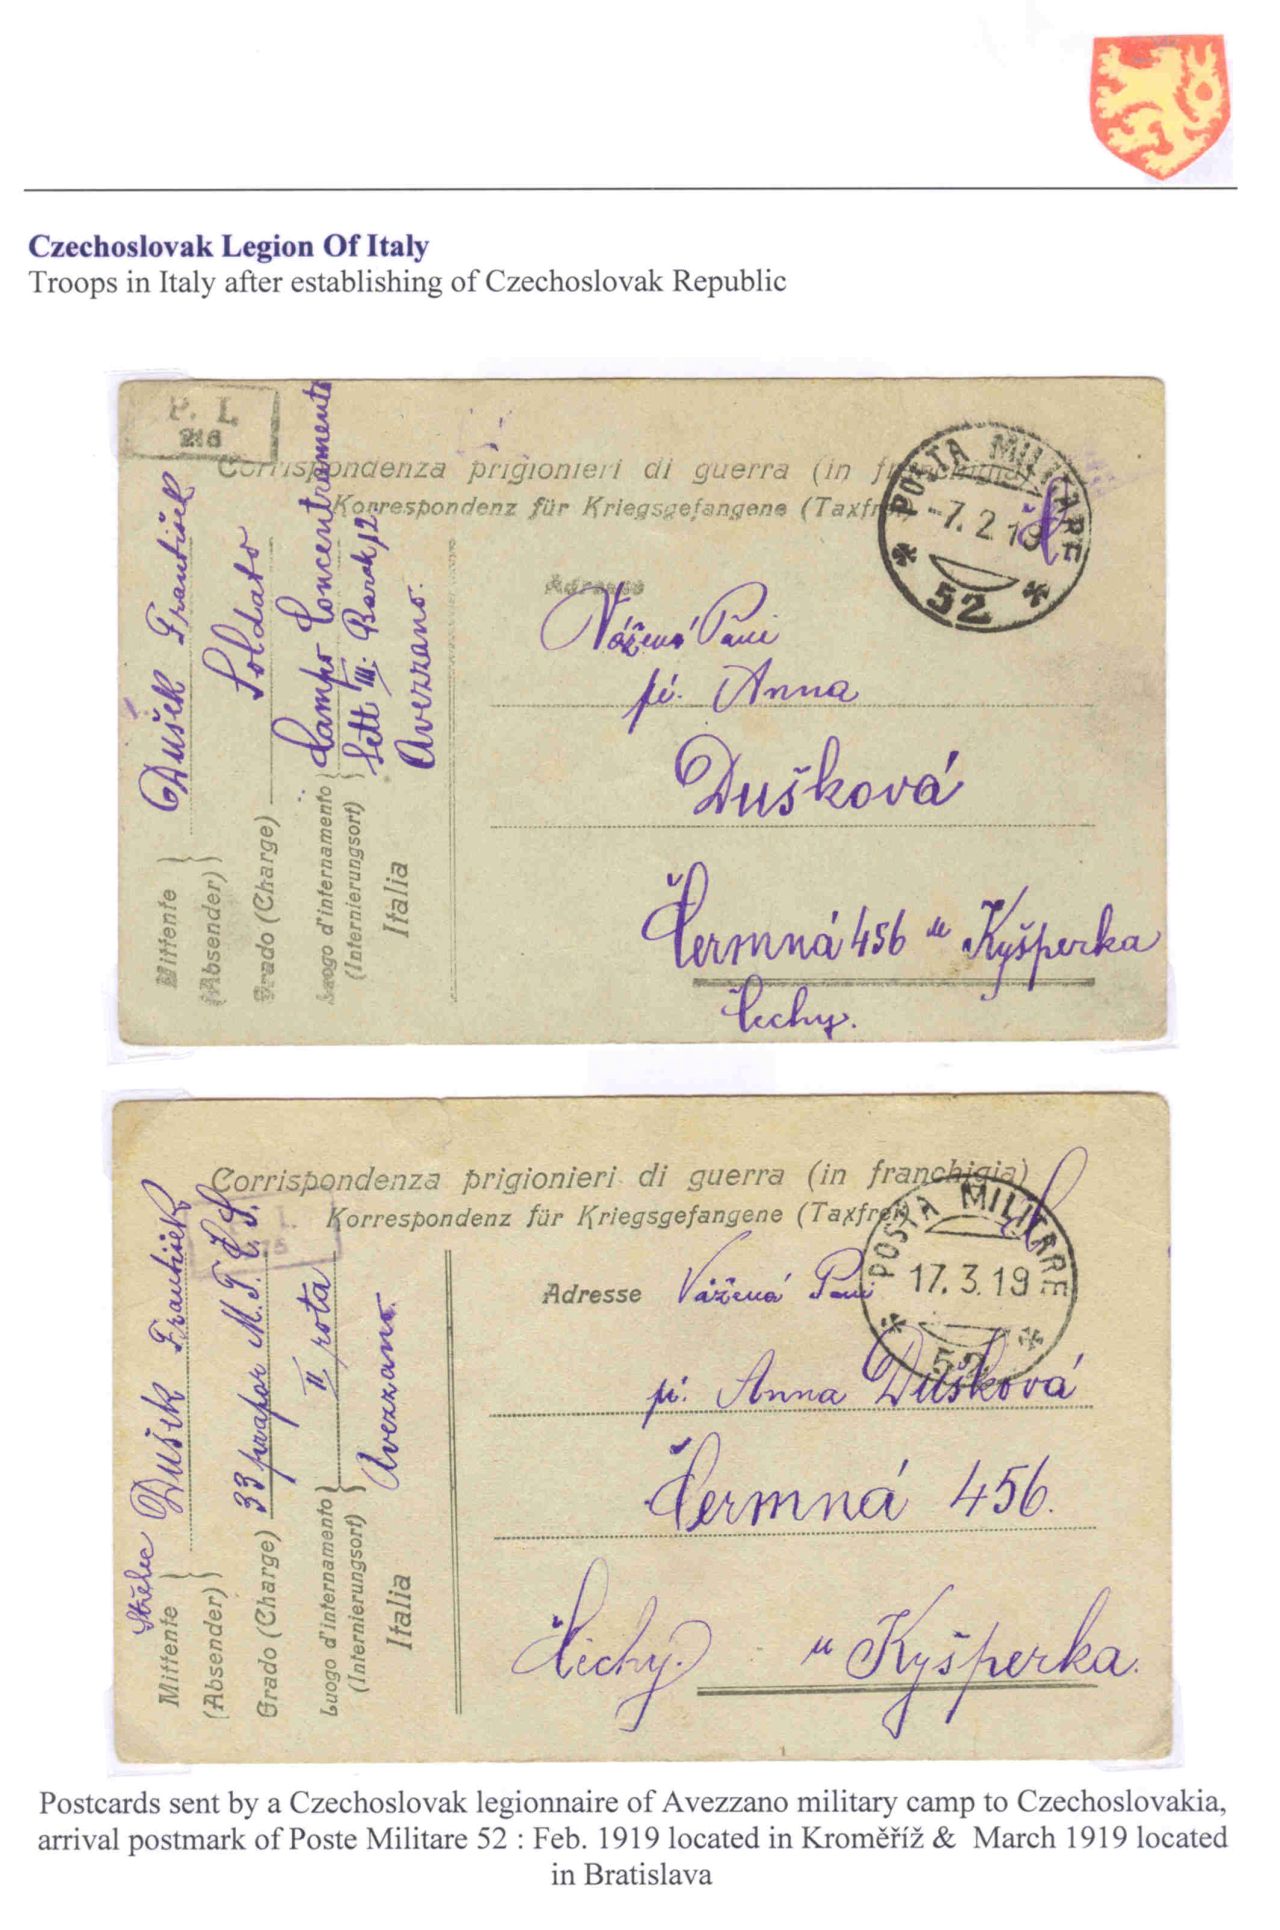 Czechoslovak Legion Of Italy
Troops in Italy after establishing of Czechoslovak Republic
P. I.
216
Corrispondenza prigionieri di guerra (in franchigia)
Korrespondenz für Kriegsgefangene (Taxfrei)
POSTA MILITARE
-7. 2 19
52
Adresse
Vážená Paní
pí. Anna
Dušková
Čermná 456 u Kyšperka
Čechy.
Mittente
(Absender)
Dušek František
Grado (Charge)
Soldato
Luogo d'internamento
(Internierungsort)
Campo Concentramento
Sett III. Barak 12
Avezzano.
Italia
Corrispondenza prigionieri di guerra (in franchigia)
Korrespondenz für Kriegsgefangene (Taxfrei)
POSTA MILITARE
17. 3. 19
52
Adresse Vážená Paní
pí. Anna Dušková
Čermná 456.
Čechy. u Kyšperka.
Mittente
(Absender)
Střelec Dušek František
Grado (Charge)
33 prapor M.T.Č.S.
Luogo d'internamento
(Internierungsort)
II rota
Avezzano.
Italia
Postcards sent by a Czechoslovak legionnaire of Avezzano military camp to Czechoslovakia,
arrival postmark of Poste Militare 52 : Feb. 1919 located in Kroměříž & March 1919 located
in Bratislava